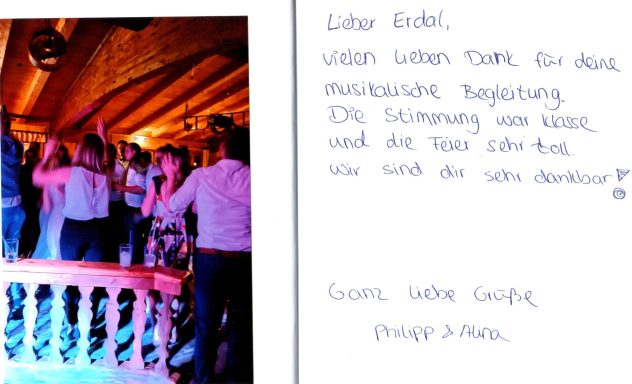 Lieber Erdal,
vielen lieben Dank für deine
musikalische Begleitung.
Die Stimmung war klasse
und die Feier sehr toll.
Wir sind dir sehr dankbar!
Ganz liebe Grüße
Philipp & Alina